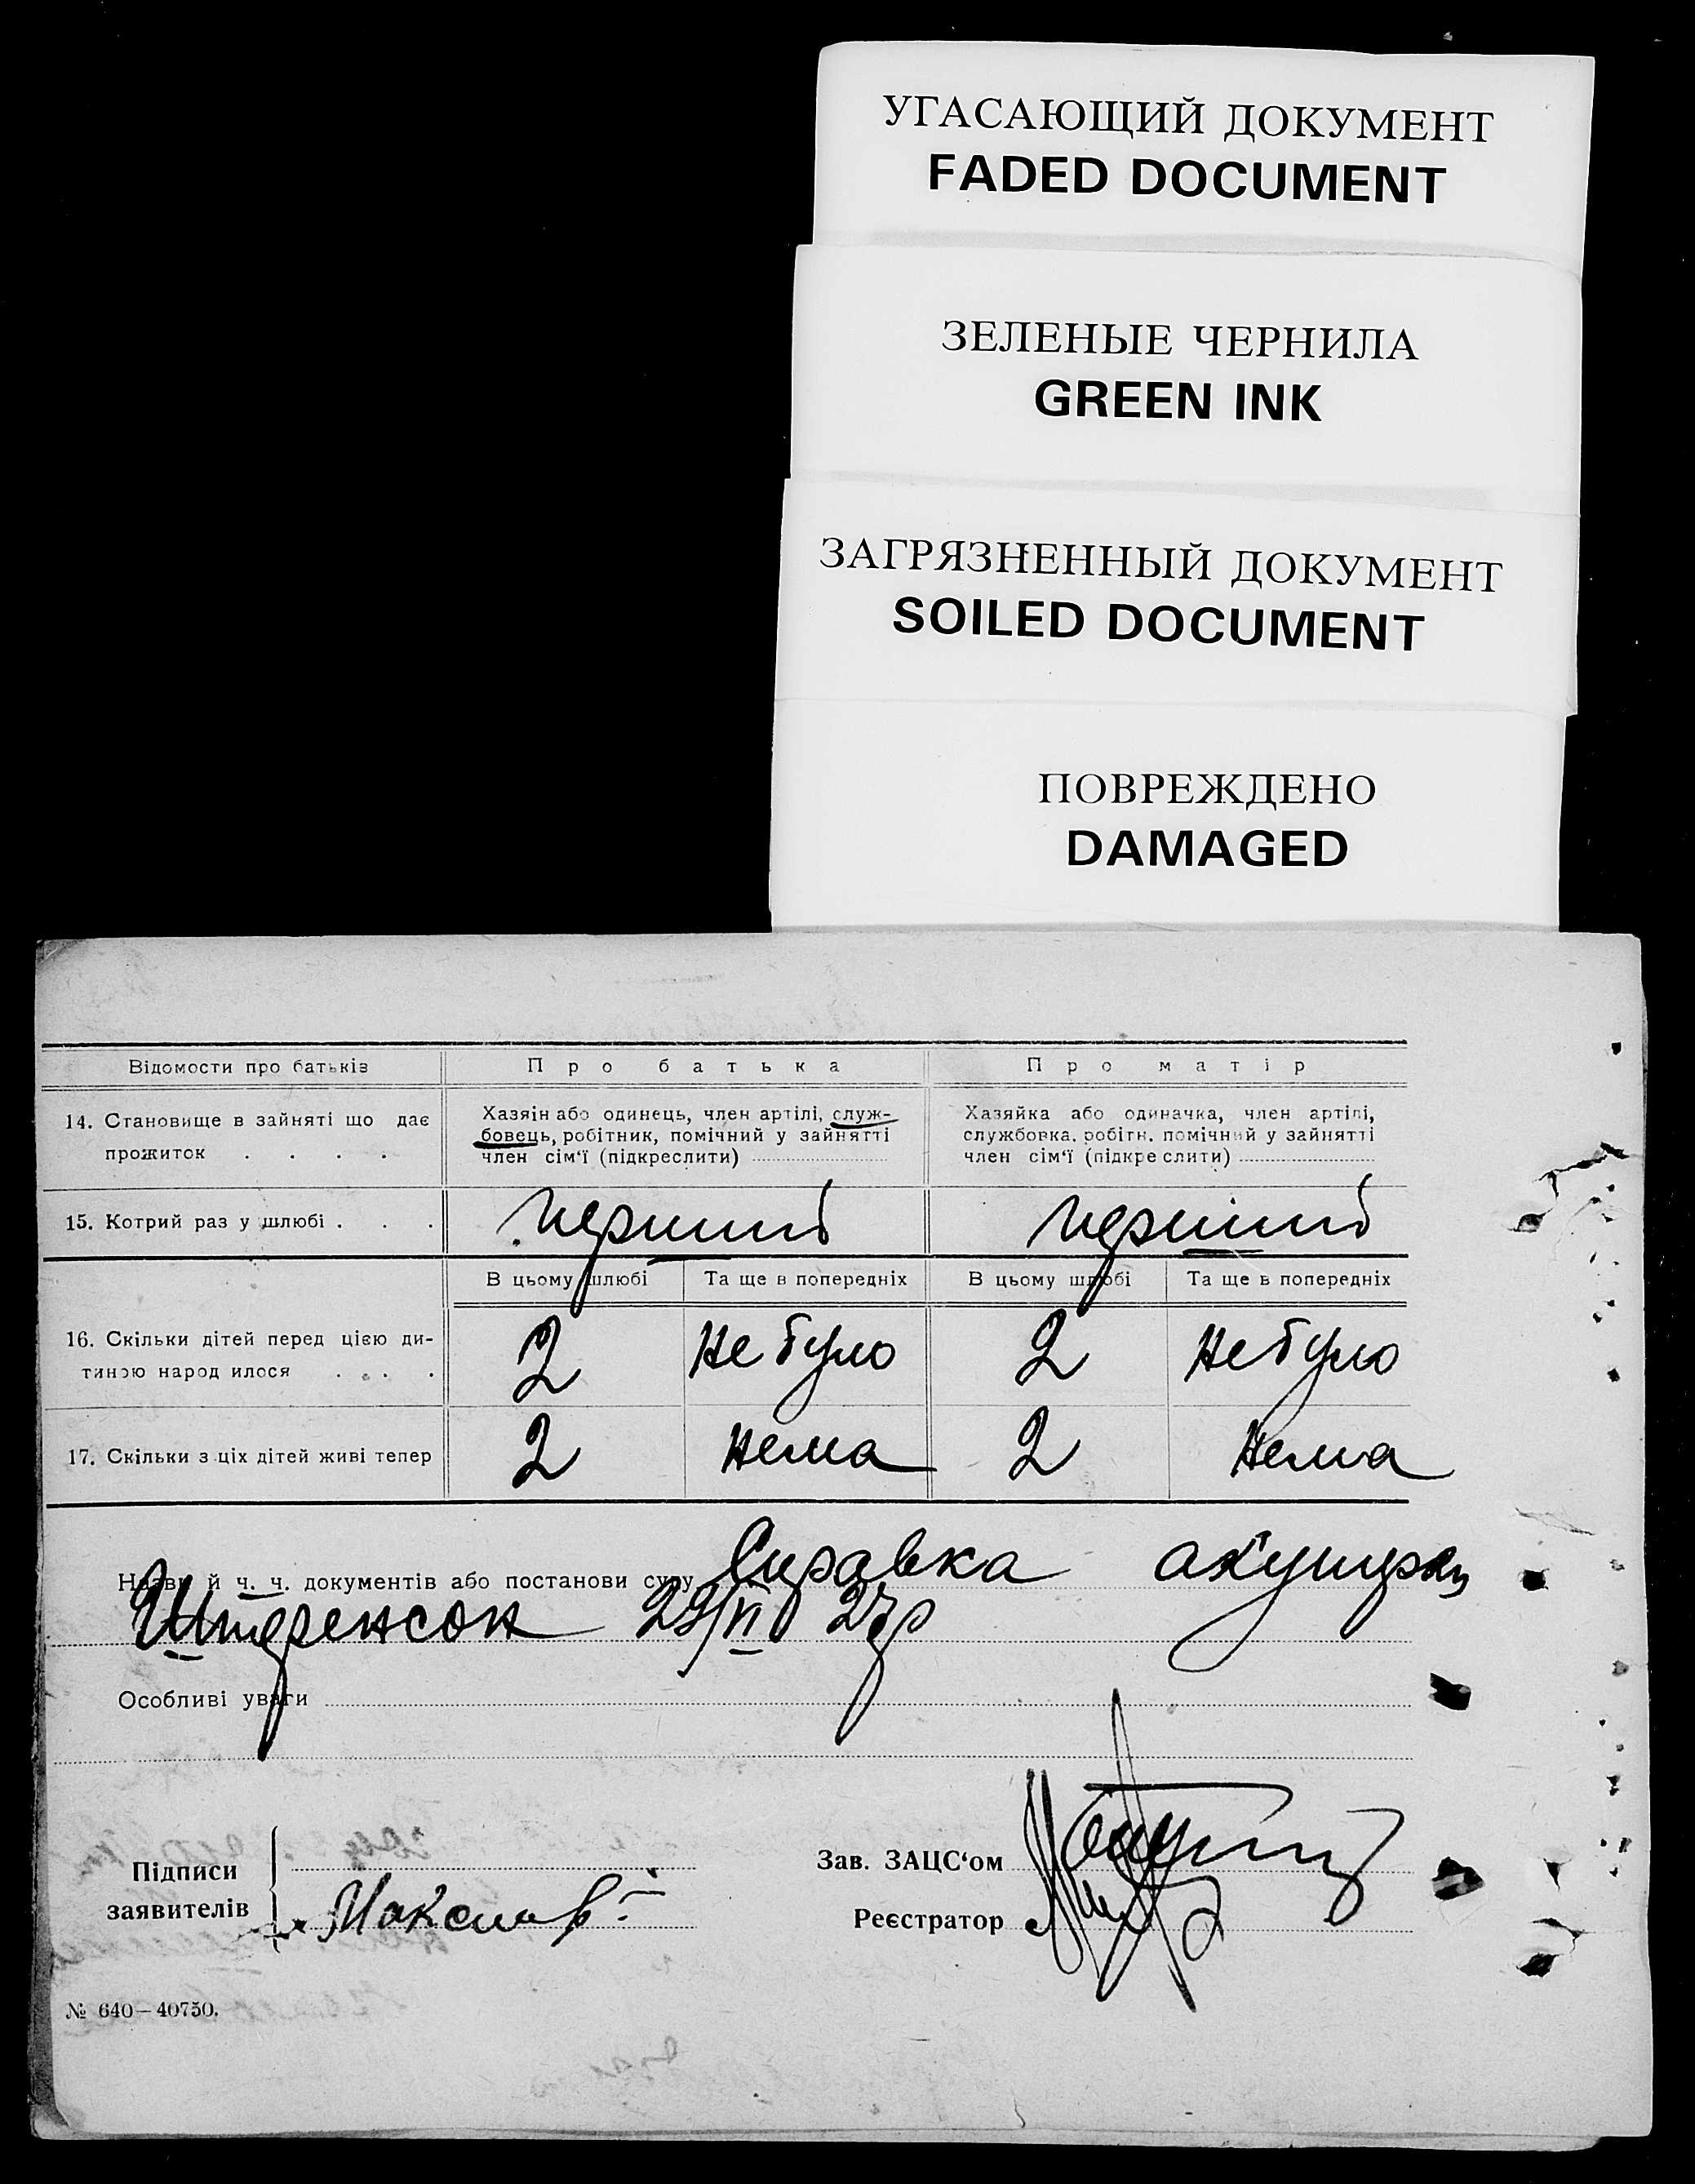 УГАСАЮЩИЙ ДОКУМЕНТ
FADED DOCUMENT
ЗЕЛЕНЫЕ ЧЕРНИЛА
GREEN INK
ЗАГРЯЗНЕННЫЙ ДОКУМЕНТ
SOILED DOCUMENT
ПОВРЕЖДЕНО
DAMAGED
Відомости про батьків П р о б а т ь к а П р о м а т і р
14. Становище в зайняті що дає прожиток . . . .
Хазяїн або одинець, член артілі, служ-
бовець, робітник, помічний у зайнятті
член сім'ї (підкреслити)
Хазяйка або одиначка, член артілі,
службовка, робітн. помічний у зайнятті
член сім'ї (підкреслити)
15. Котрий раз у шлюбі . . . перший перший
В цьому шлюбі Та ще в попередніх В цьому шлюбі Та ще в попередніх
16. Скільки дітей перед цією ди-
тиною народилося . . . . 2 Не було 2 Не було
17. Скільки з ціх дітей живі тепер 2 Нема 2 Нема
Назви й ч. ч. документів або постанови суду Справка
29/VI 27р
Особливі уваги
Підписи
заявителів
Зав. ЗАЦС'ом
Реєстратор
№ 640—40750.